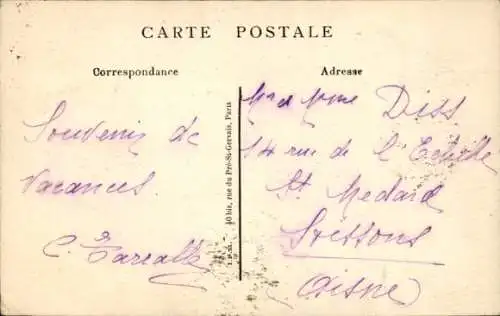 CARTE POSTALE
Correspondance
Adresse
Souvenir de
Vacances.
C.
40 bis, rue du Pré-St-Gervais, Paris
Mr et Mme Diss
14 rue de l'Echelle
St. Medard
Soissons
(Aisne)